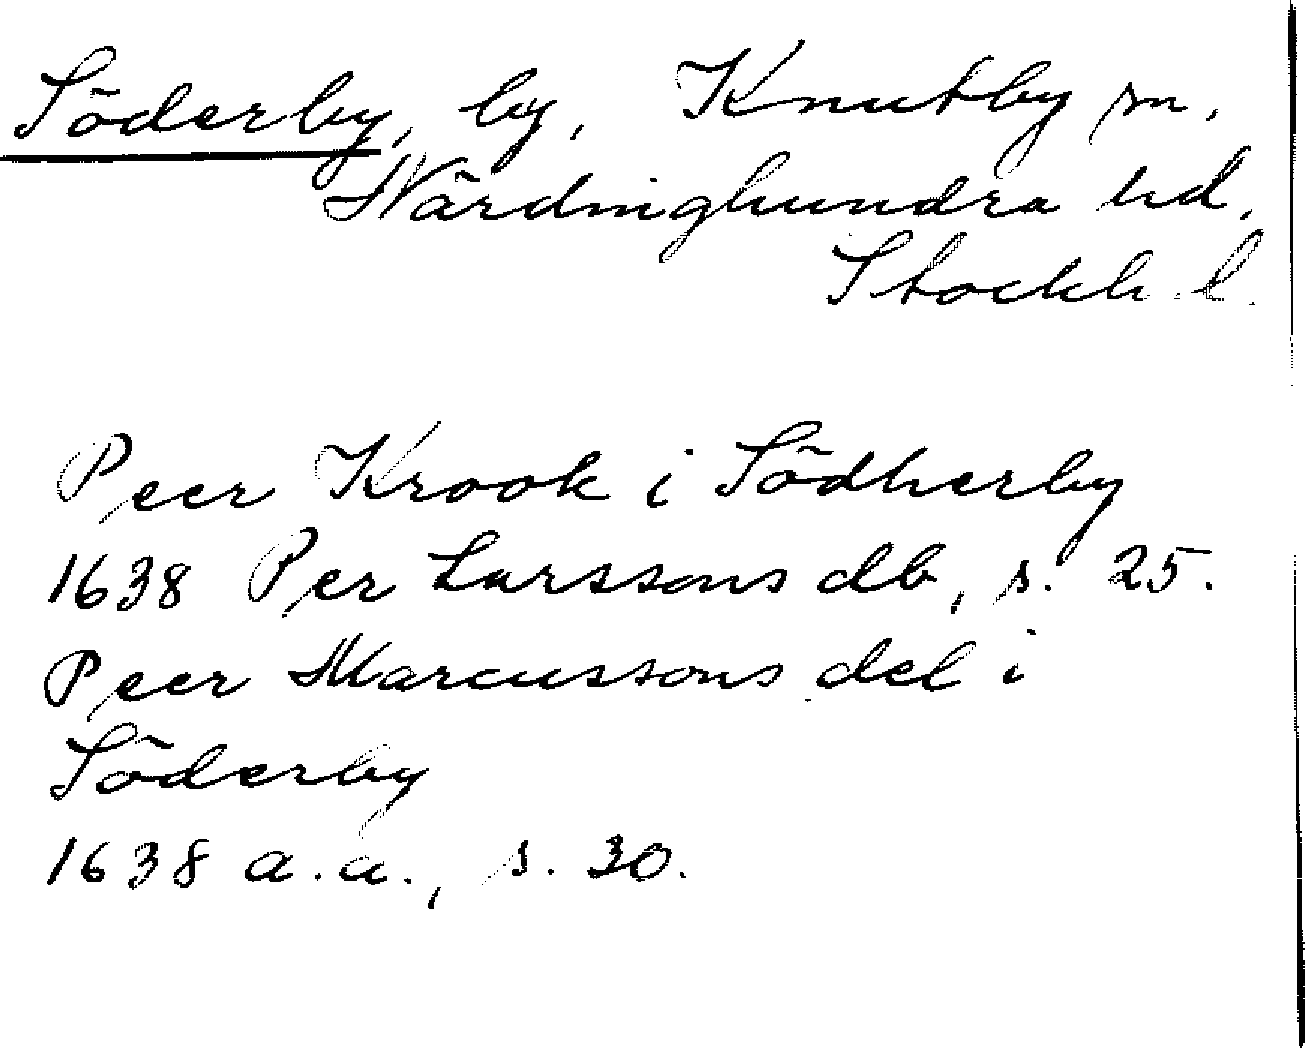 Söderby, by, Knutby sn.
Närdinghundra hd.
Stockh. l.
Peer Krook i Södherby
1638 Per Larssons db, s. 25.
Peer Marcussons del i
Söderby
1638 a.a., s. 30.